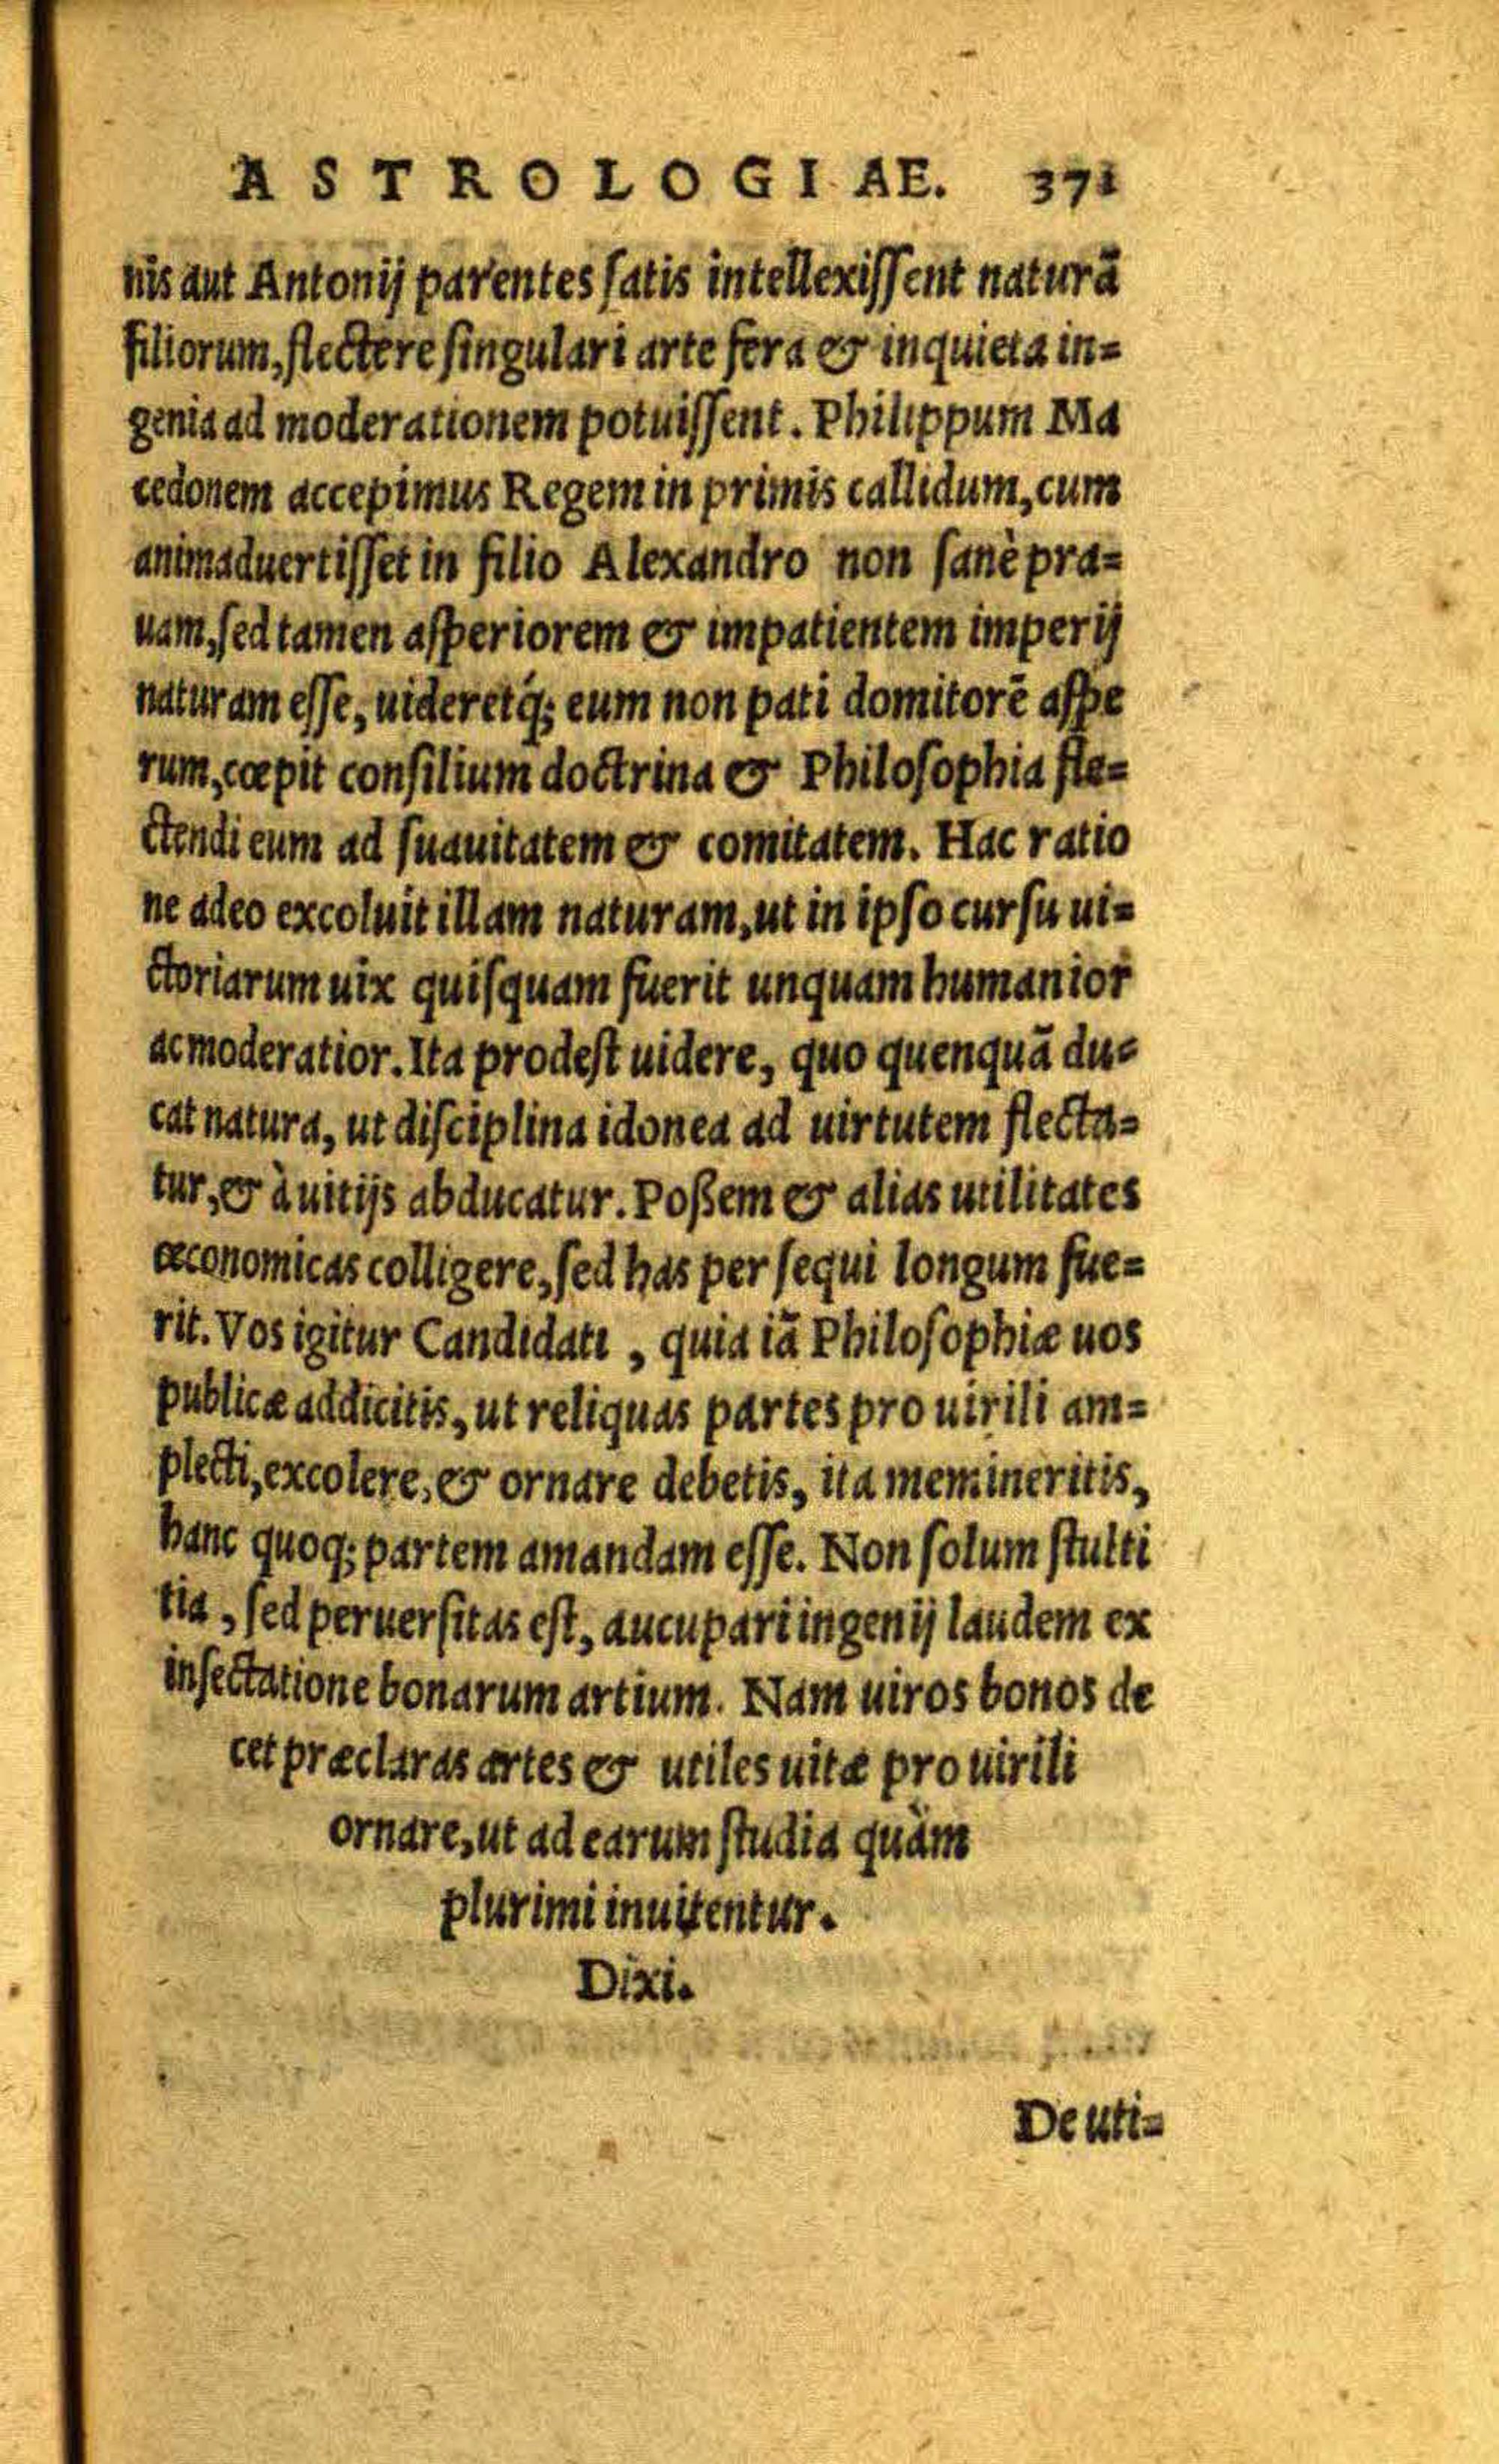 ASTROLOGIAE. 371
nis aut Antonij parentes ſatis intellexiſſent naturã
filiorum, flectere ſingulari arte fera & inquieta in=
genia ad moderationem potuiſſent. Philippum Ma
cedonem accepimus Regem in primis callidum, cum
animaduertiſſet in filio Alexandro non ſanè pra=
uam, ſed tamen aſperiorem & impatientem imperij
naturam eſſe, uideretq́; eum non pati domitorẽ aſpe
rum, cœpit conſilium doctrina & Philoſophia fle=
ctendi eum ad ſuauitatem & comitatem. Hac ratio
ne adeo excoluit illam naturam, ut in ipſo curſu ui=
ctoriarum uix quiſquam fuerit unquam humanior
ac moderatior. Ita prodeſt uidere, quo quenquã du=
cat natura, ut diſciplina idonea ad uirtutem flecta=
tur, & à uitijs abducatur. Poßem & alias utilitates
œconomicas colligere, ſed has perſequi longum fue=
rit. Vos igitur Candidati, quia iã Philoſophiæ uos
publicæ addicitis, ut reliquas partes pro uirili am=
plecti, excolere, & ornare debetis, ita memineritis,
hanc quoq; partem amandam eſſe. Non ſolum ſtulti
tia, ſed peruerſitas eſt, aucupari ingenij laudem ex
inſectatione bonarum artium. Nam uiros bonos de
cet præclaras artes & utiles uitæ pro uirili
ornare, ut ad earum ſtudia quàm
plurimi inuitentur.
Dixi.
De uti=